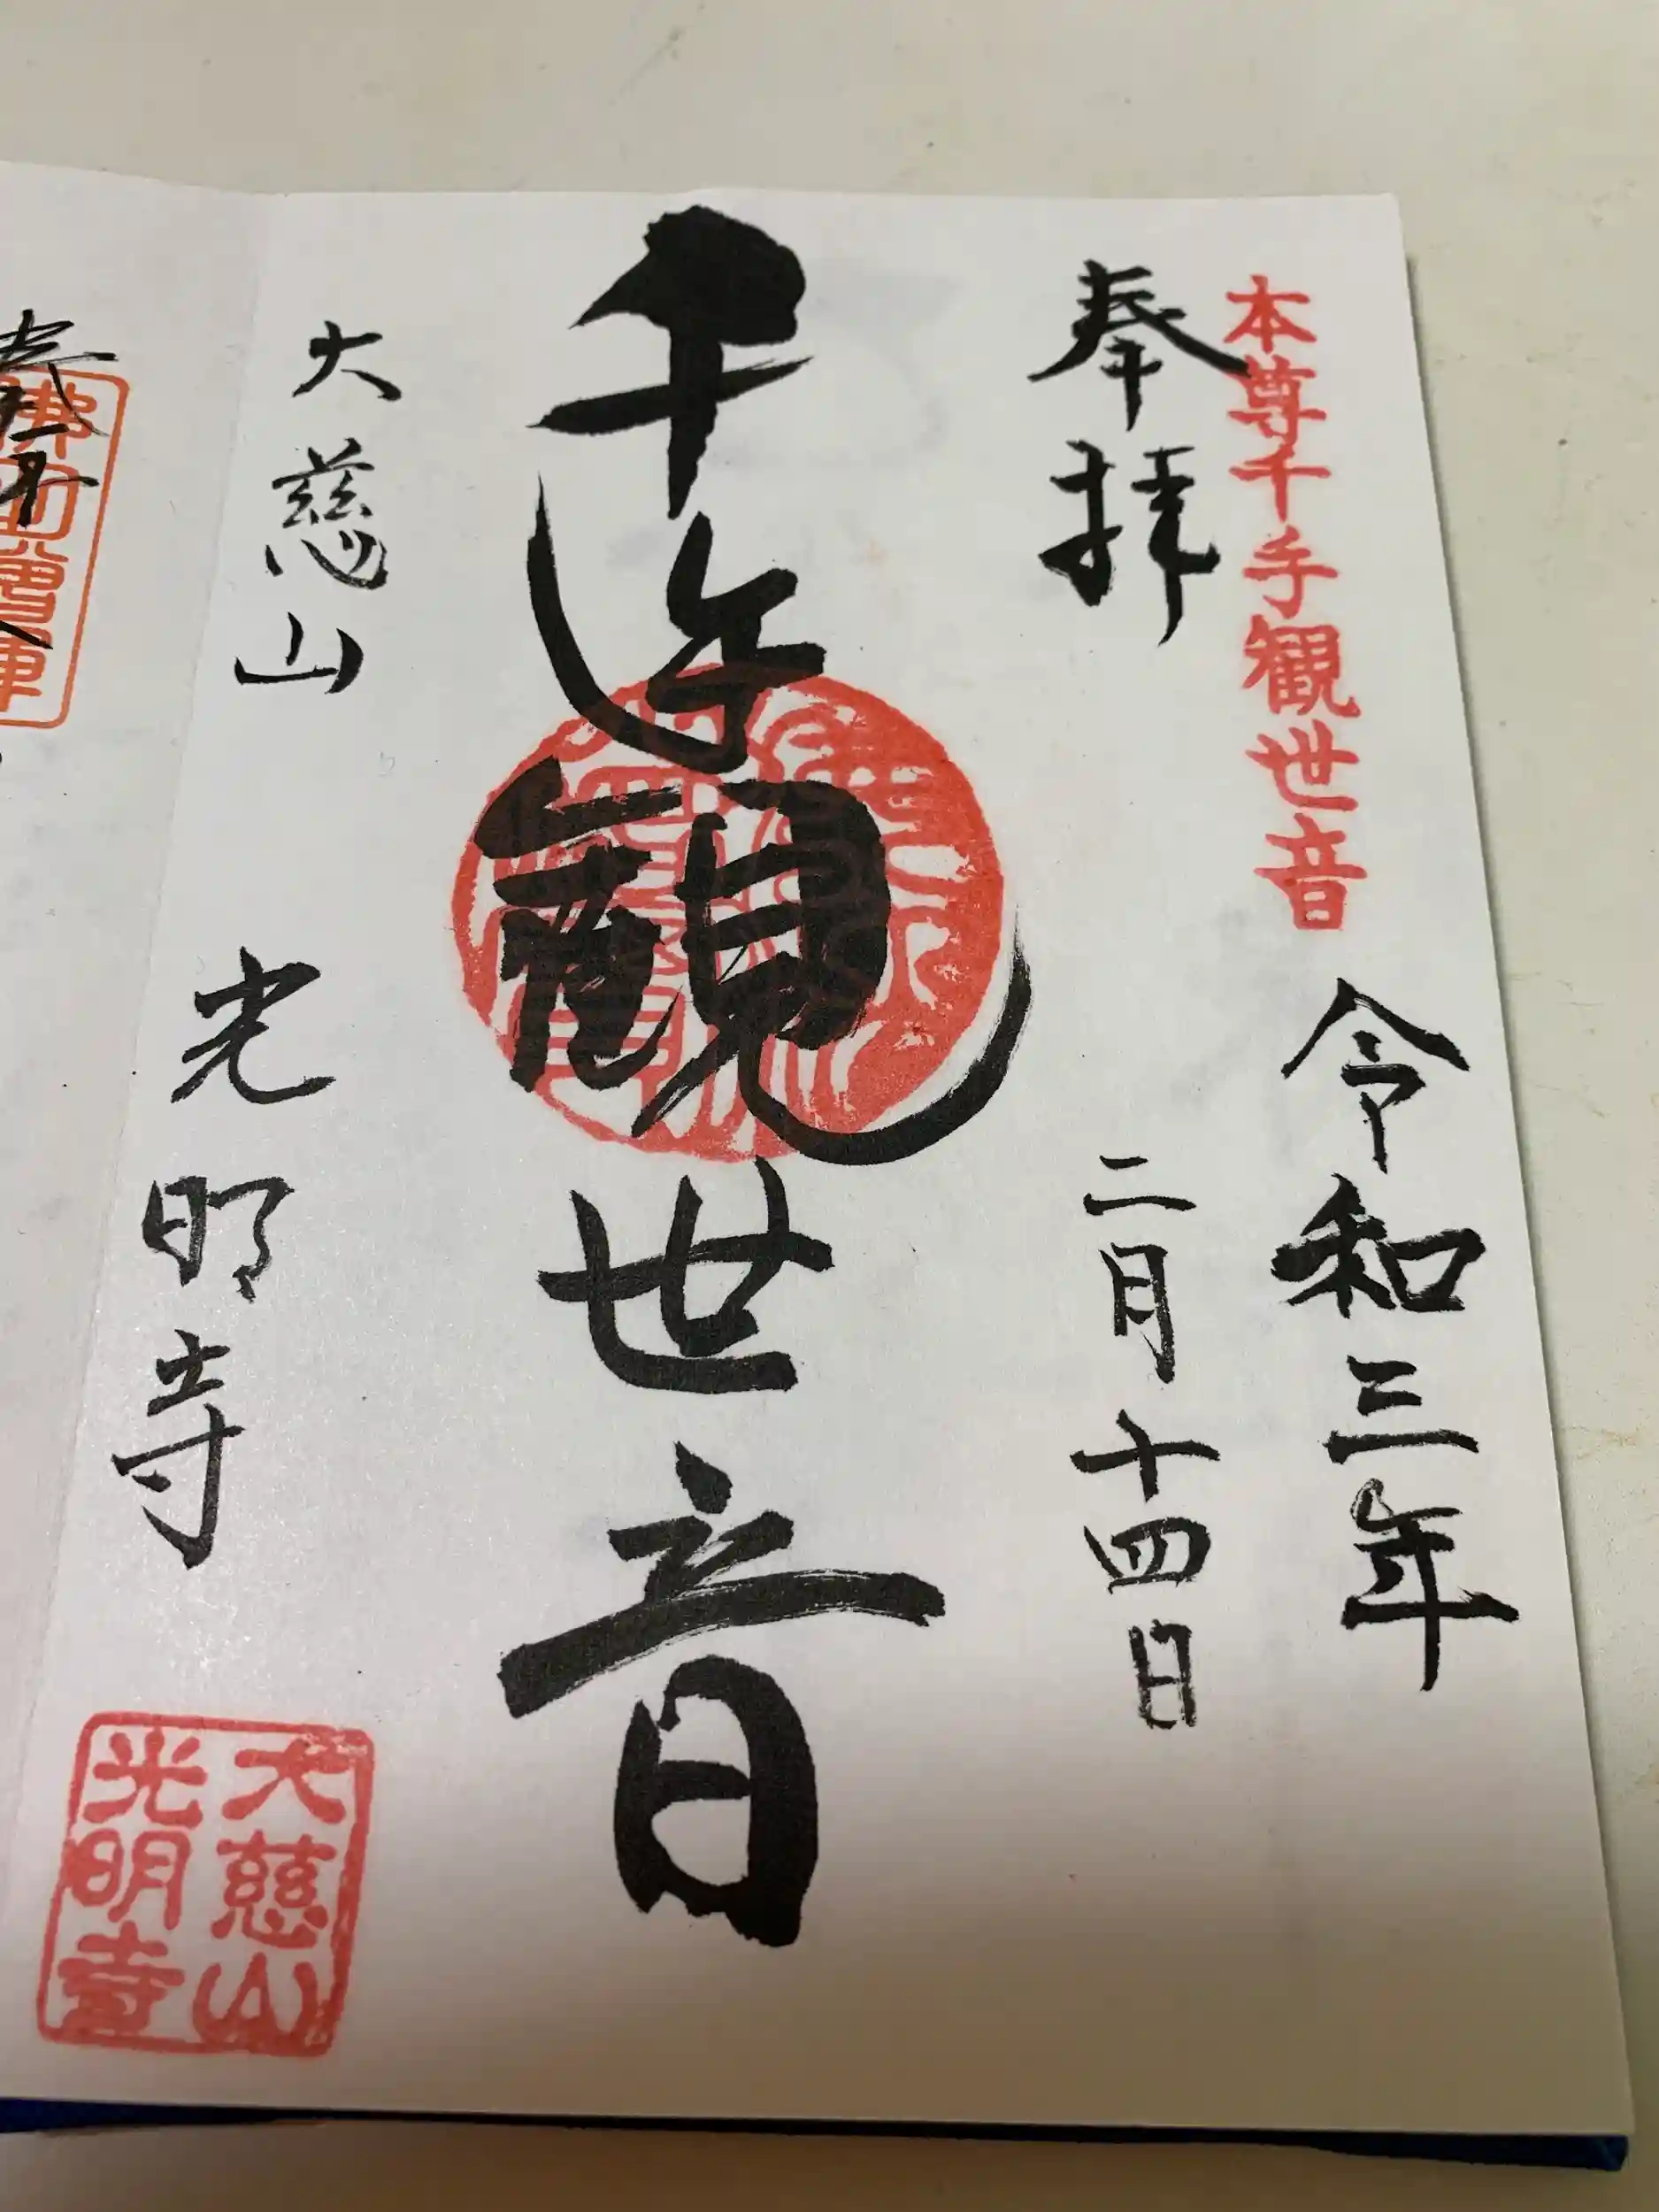 本尊千手観世音
令和三年
奉拝
二月十四日
千手観世音
大慈山
光明寺
大慈山
光明寺